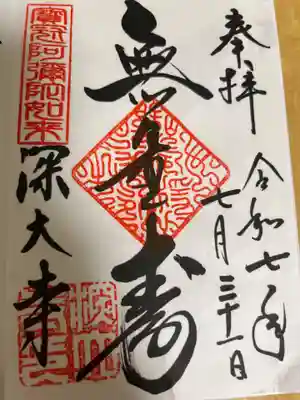 奉拝
令和七年
七月三十一日
無量寿
寳冠阿彌陀如来
深大寺